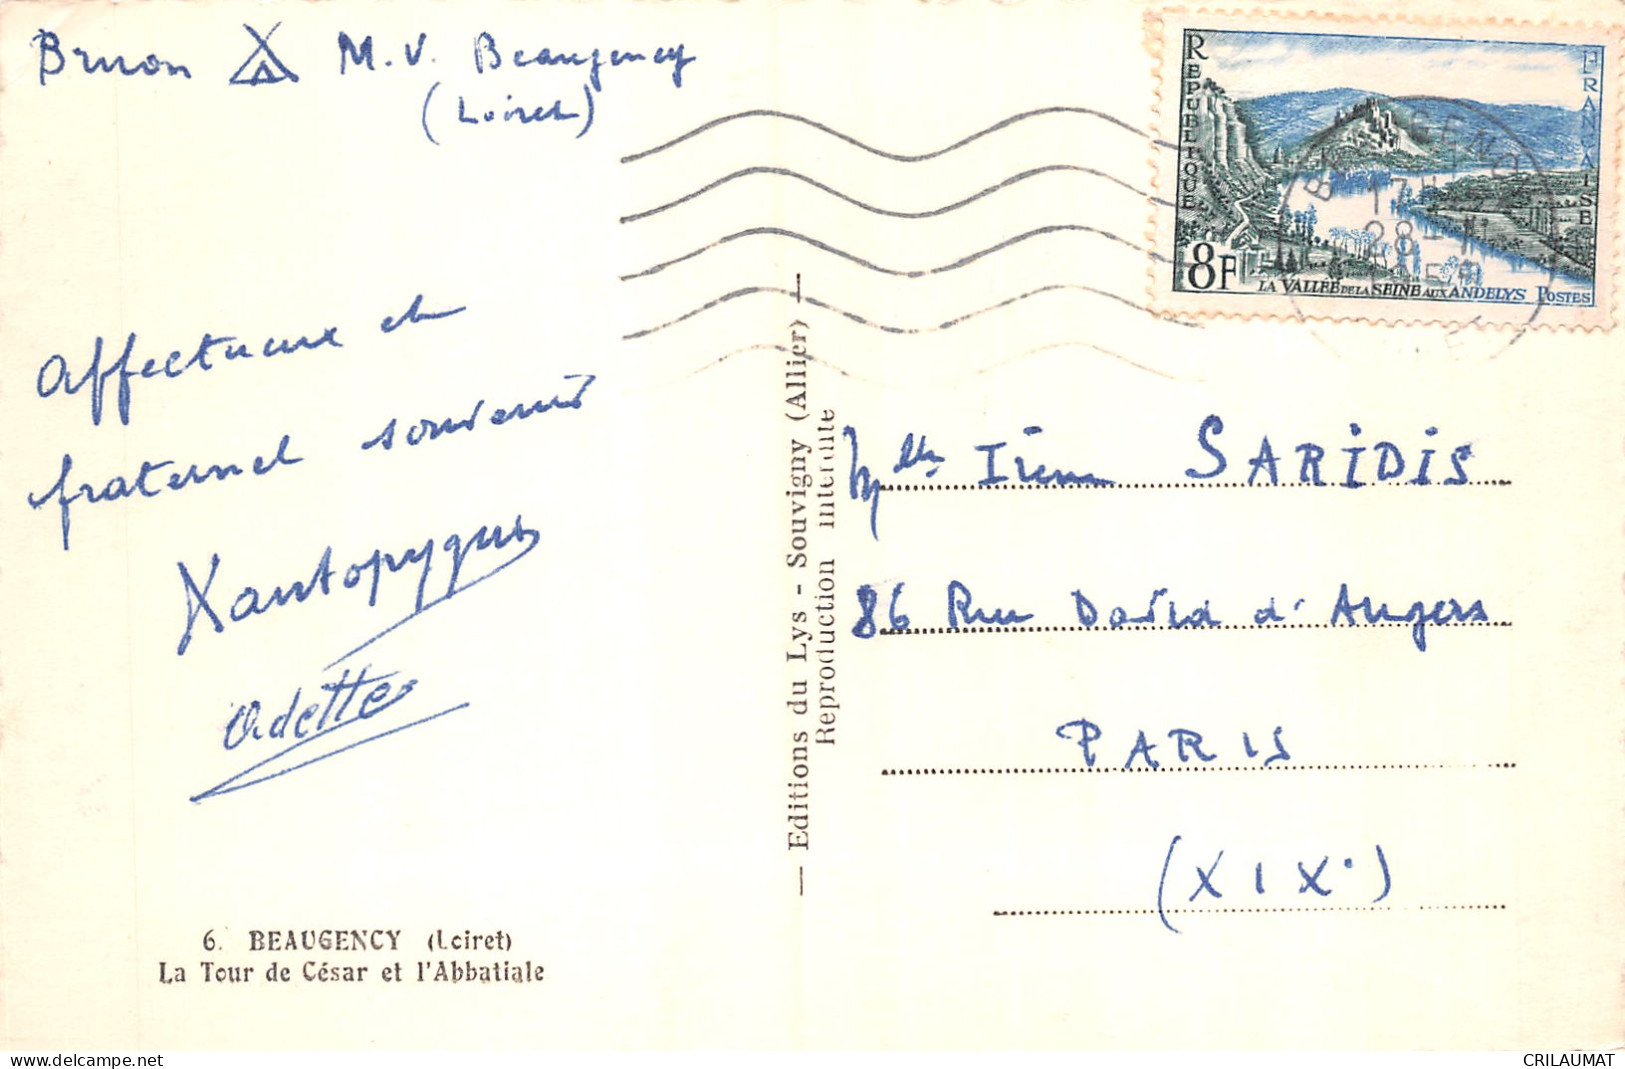 Bruon M.V. Beaugency
(Loiret)
Affectueux et
fraternel souvenir
Xantopygus
Odette
6. BEAUGENCY (Loiret)
La Tour de César et l'Abbatiale
— Editions du Lys - Souvigny (Allier) —
Reproduction interdite
REPUBLIQUE
FRANÇAISE
8F
LA VALLÉE DE LA SEINE AUX ANDELYS POSTES
17H
28-
Mlle Irène SARIDIS
86 Rue David d'Angers
PARIS
(XIXe)
CRILAUMAT